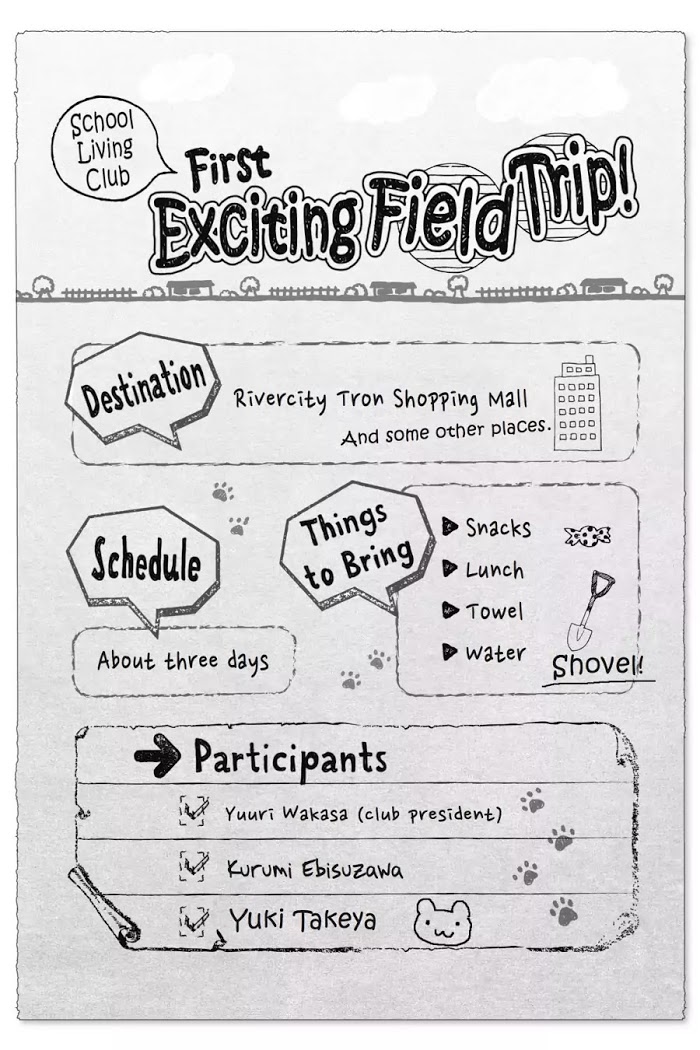 School
Living
Club
First
Exciting Field Trip!
Destination
Rivercity Tron Shopping Mall
And some other places.
Schedule
About three days
Things
to Bring
Snacks
Lunch
Towel
Water
Shovel!
Participants
Yuuri Wakasa (club president)
Kurumi Ebisuzawa
Yuki Takeya